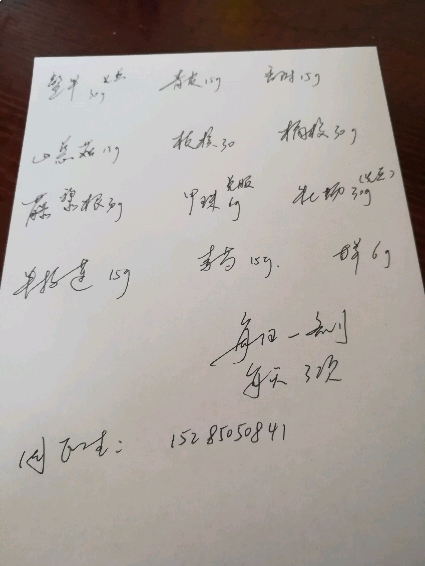 鳖甲 先煎 30g 青皮 15g 15g
山慈菇 15g 桔核 30 30g
藤梨根 30g 甲珠 兑服 6g 牡蛎 30g (先煎)
半枝莲 15g 15g. 6g
每日一剂
每天 3次
15285050841